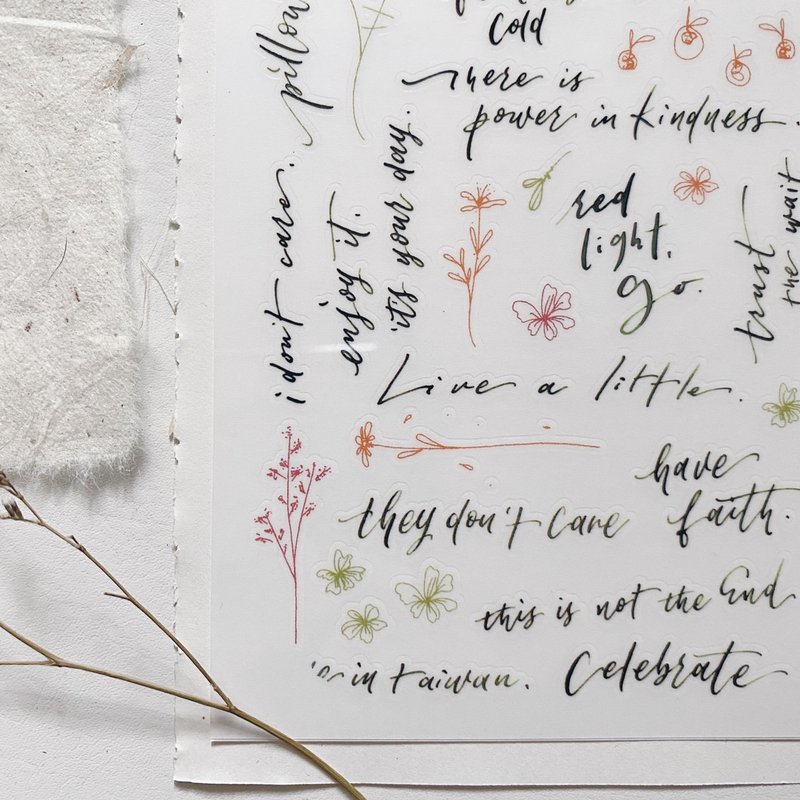 pillow
cold
There is
power in kindness.
i don't care.
enjoy it.
it's your day.
red
light,
go.
trust
the wait
Live a little.
have
faith.
they don't care
this is not the End
in taiwan.
Celebrate